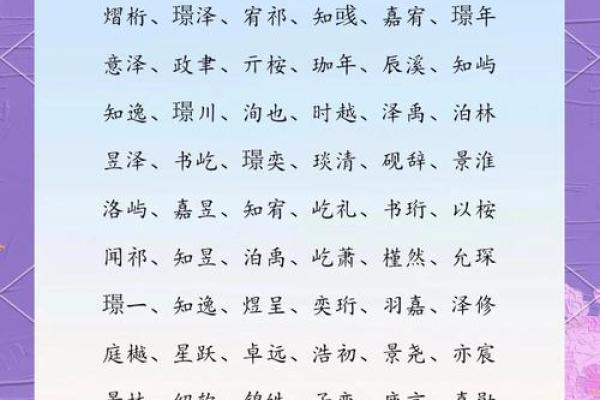 熠桁、璟泽、宥祁、知彧、嘉宥、璟年
意泽、政聿、亓桉、珈年、辰溪、知屿
知逸、璟川、洵也、时越、泽禹、泊林
昱泽、书屹、璟奕、琰清、砚辞、景淮
洛屿、嘉昱、知宥、屹礼、书珩、以桉
闻祁、知昱、泊禹、屹萧、槿然、允琛
璟一、知逸、煜呈、奕珩、羽嘉、泽修
庭樾、星跃、卓远、浩初、景尧、亦宸